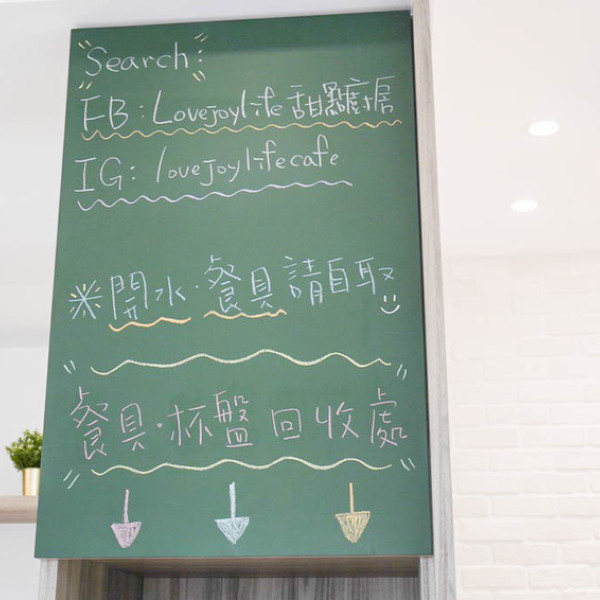 Search:
FB: Lovejoylife 甜點廚房
IG: lovejoylifecafe
※開水·餐具請自取
餐具·杯盤回收處